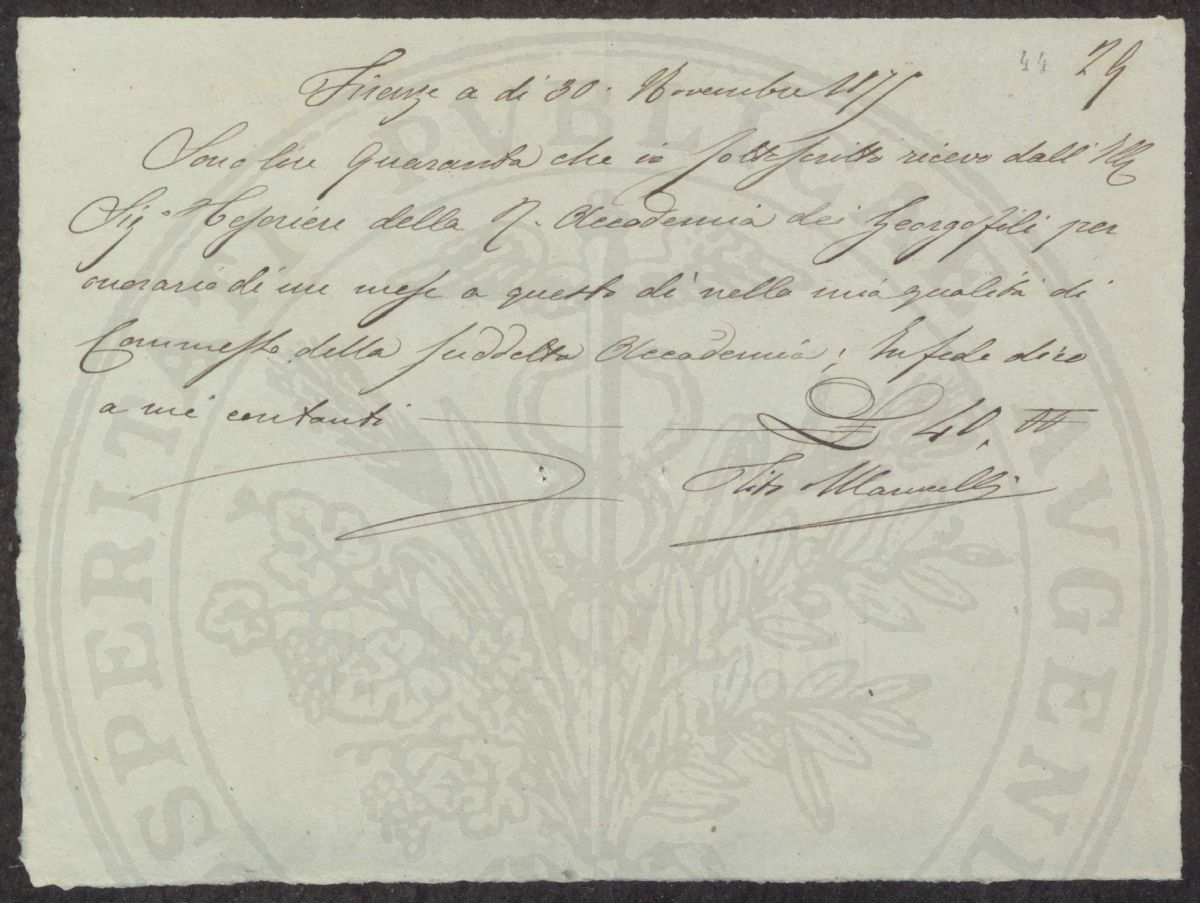 44 29
Firenze a dì 30. Novembre 1875
Sono lire Quaranta che io sottoscritto ricevo dall' Ill
Sig Tesoriere della R. Accademia dei Georgofili per
onorario di un mese a questo dì nella mia qualità di
Commesso della suddetta Accademia; In fede dico
a me contanti £ 40,
Tito Marucelli
PROSPERITATI PVBLICAE AVGENDAE